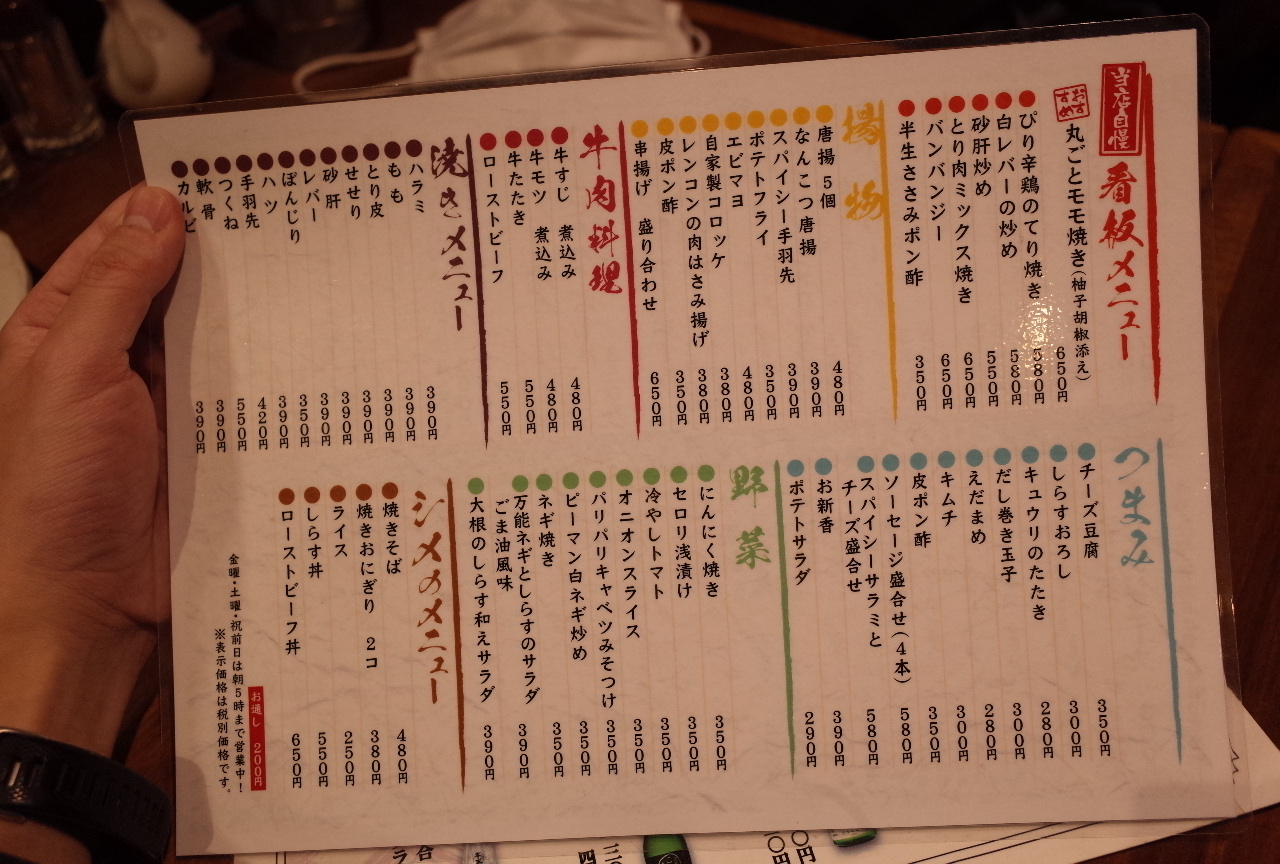 当店自慢
看板メニュー
おすすめ
丸ごとモモ焼き(柚子胡椒添え) 650円
ぴり辛鶏のてり焼き 580円
白レバーの炒め 580円
砂肝炒め 550円
とり肉ミックス焼き 650円
バンバンジー 650円
半生ささみポン酢 350円
揚物
唐揚 5個 480円
なんこつ唐揚 390円
スパイシー手羽先 390円
ポテトフライ 350円
エビマヨ 480円
自家製コロッケ 380円
レンコンの肉はさみ揚げ 380円
皮ポン酢 350円
串揚げ 盛り合わせ 650円
牛肉料理
牛すじ 煮込み 480円
牛モツ 煮込み 480円
牛たたき 550円
ローストビーフ 550円
焼きメニュー
ハラミ 390円
もも 390円
とり皮 390円
せせり 390円
砂肝 390円
レバー 350円
ぼんじり 390円
ハツ 420円
手羽先 550円
つくね 390円
軟骨 390円
カルビ
つまみ
チーズ豆腐 350円
しらすおろし 300円
キュウリのたたき 280円
だし巻き玉子 300円
えだまめ 280円
キムチ 300円
皮ポン酢 350円
ソーセージ盛合せ(4本) 580円
スパイシーサラミと
チーズ盛合せ 580円
お新香 390円
ポテトサラダ 290円
野菜
にんにく焼き 350円
セロリ浅漬け 350円
冷やしトマト 350円
オニオンスライス 350円
パリパリキャベツみそつけ 350円
ピーマン白ネギ炒め 350円
ネギ焼き 350円
万能ネギとしらすのサラダ
ごま油風味 390円
大根のしらす和えサラダ 390円
シメのメニュー
焼きそば 480円
焼きおにぎり 2コ 380円
ライス 250円
しらす丼 550円
ローストビーフ丼 650円
お通し 200円
金曜・土曜・祝前日は朝5時まで営業中!
※表示価格は税別価格です。